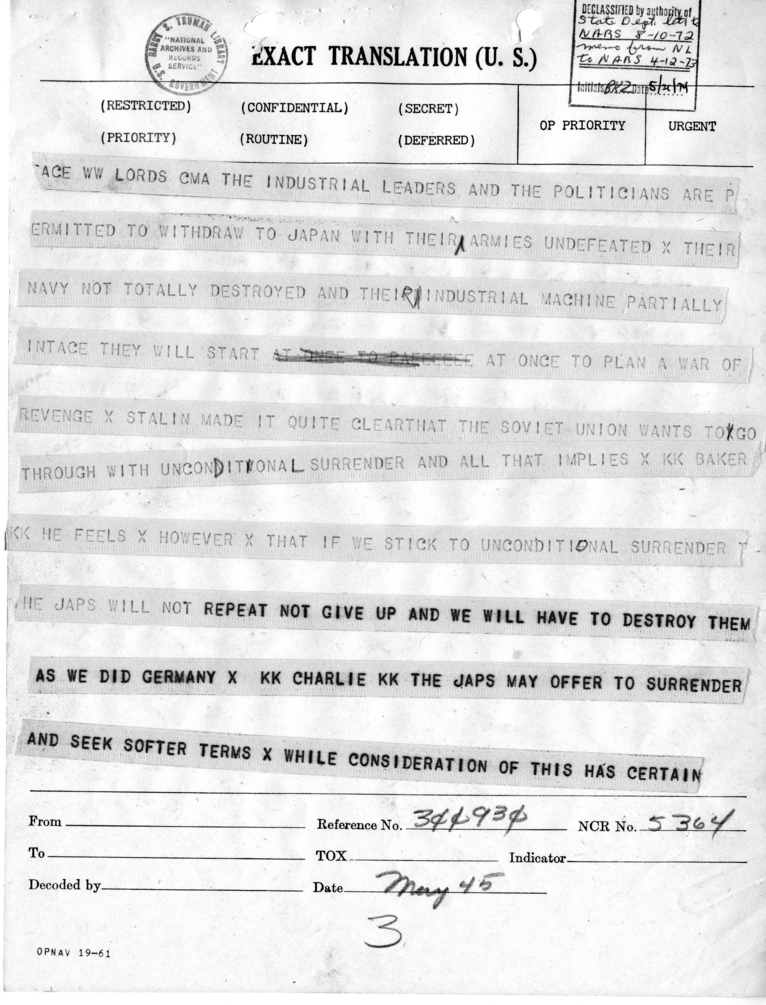 HARRY S. TRUMAN LIBRARY
"NATIONAL
ARCHIVES AND
RECORDS
SERVICE"
U.S. GOVERNMENT
DECLASSIFIED by authority of
State Dept. let to
NARS 8-10-72
memo from NL
to NARS 4-12-73
Initials Date
EXACT TRANSLATION (U. S.)
(RESTRICTED) (CONFIDENTIAL) (SECRET)
(PRIORITY) (ROUTINE) (DEFERRED)
OP PRIORITY URGENT
TACE WW LORDS CMA THE INDUSTRIAL LEADERS AND THE POLITICIANS ARE P
ERMITTED TO WITHDRAW TO JAPAN WITH THEIR ARMIES UNDEFEATED X THEIR
NAVY NOT TOTALLY DESTROYED AND THEIR INDUSTRIAL MACHINE PARTIALLY
INTACE THEY WILL START AT ONCE TO PLAN A WAR OF
REVENGE X STALIN MADE IT QUITE CLEARTHAT THE SOVIET UNION WANTS TO GO
THROUGH WITH UNCONDITIONAL SURRENDER AND ALL THAT IMPLIES X KK BAKER
KK HE FEELS X HOWEVER X THAT IF WE STICK TO UNCONDITIONAL SURRENDER T
HE JAPS WILL NOT REPEAT NOT GIVE UP AND WE WILL HAVE TO DESTROY THEM
AS WE DID GERMANY X KK CHARLIE KK THE JAPS MAY OFFER TO SURRENDER
AND SEEK SOFTER TERMS X WHILE CONSIDERATION OF THIS HAS CERTAIN
From Reference No. NCR No. 5364
To TOX Indicator
Decoded by Date May 45
3
OPNAV 19-61